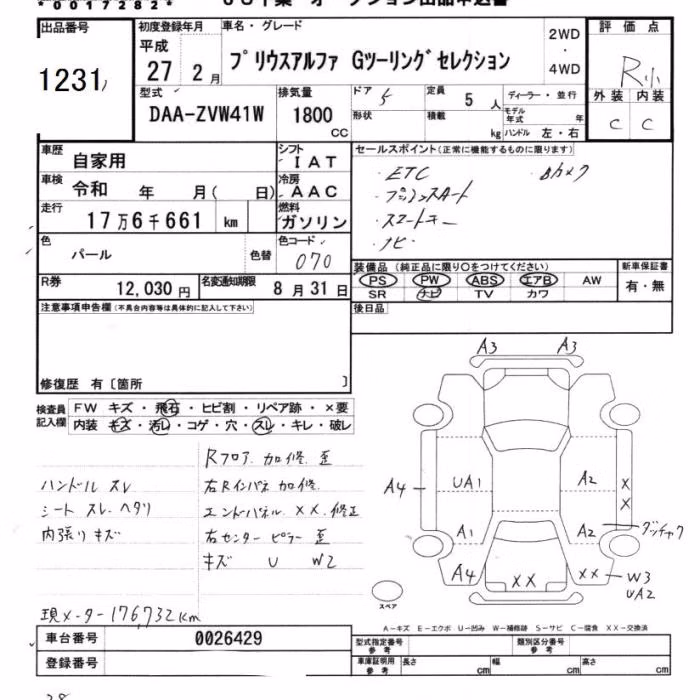 *0017282*
出品番号
1231
初度登録年月
平成
27 2月
車名・グレード
プリウスアルファ Gツーリングセレクション
2WD
・
4WD
評価点
R小
外装 内装
C C
型式
DAA-ZVW41W
排気量
1800
CC
ドア 5
定員 5 人
形状
積載 kg
ディーラー・並行
モデル年式 年
ハンドル 左・右
車歴
自家用
車検
令和 年 月( 日)
走行
17万6千661 km
色
パール
色替
シフト
IAT
冷房
AAC
燃料
ガソリン
色コード
070
R券
12,030円
名変通知期限
8月31日
セールスポイント(正常に機能するものに限ります)
・ETC ・カメラ
・プッシュスタート
・スマートキー
・ナビ
装備品 (純正品に限り○をつけてください)
PS PW ABS エアB AW
SR ナビ TV カワ
新車保証書
有・無
後日品
注意事項申告欄(不具合内容等は具体的に記入して下さい)
修復歴 有〔箇所 〕
検査員記入欄
FW キズ・飛石・ヒビ割・リペア跡・×要
内装 キズ・汚レ・コゲ・穴・スレ・キレ・破レ
Rフロア 加修 歪
ハンドル スレ
右Rインパネ 加修
シート スレ ヘタリ
エンドパネル XX 修正
内張り キズ
右センターピラー 歪
キズ U W2
現メーター176,732km
A3 A3
A4
UA1
A2
X
X
A1
A2
A4
XX
XX
W3
UA2
スペア
A-キズ E-エクボ U-凹み W-補修跡 S-サビ C-腐食 XX-交換済
車台番号
0026429
登録番号
型式指定番号
参考
類別区分番号
参考
車庫証明用
参考
長さ cm
幅 cm
高さ cm